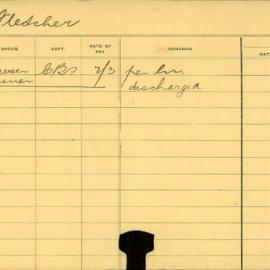 Fletcher
OFFICE DEPT. RATE OF PAY REMARKS DAT
CBs 7/3 per hr.
discharged